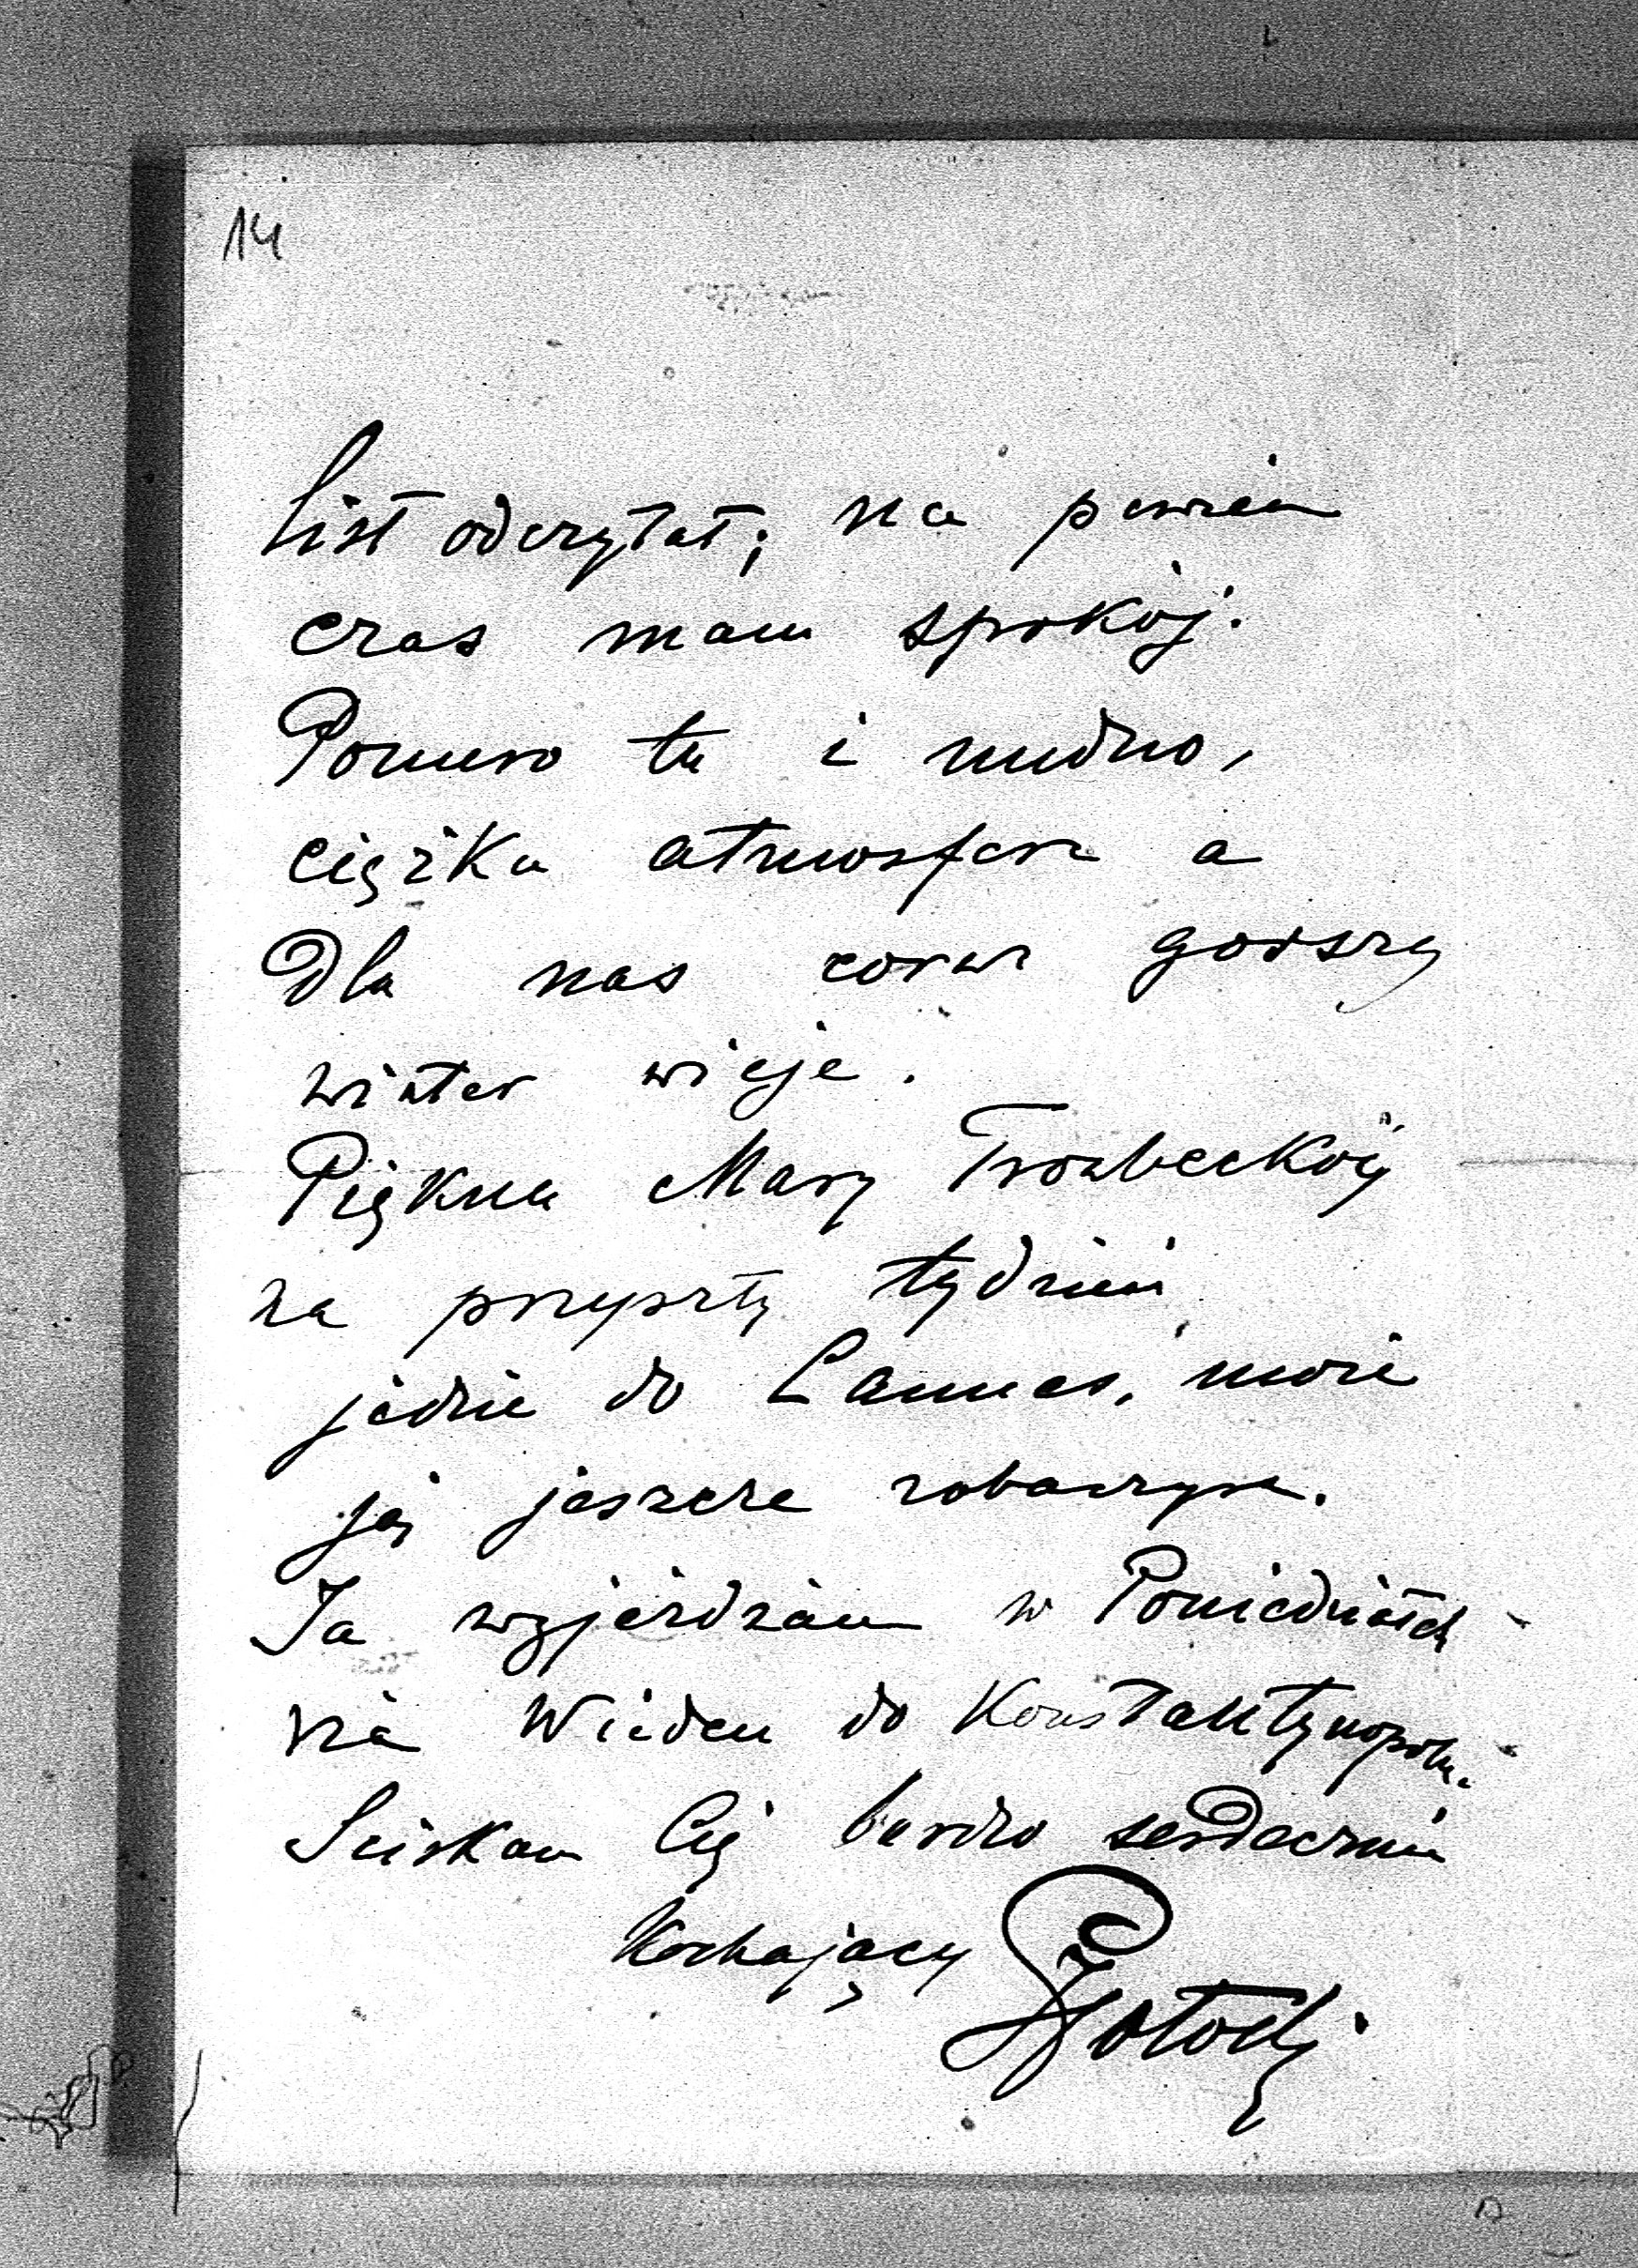 14
list odczytał; na pewien
czas mam spokój.
Ponuro tu i nudno,
ciężka atmosfera a
Dla nas coraz gorszy
wiater wieje.
Piękna Mary Troubeckoy
na przyszły tydzień
jedzie do Cannes, może
ją jeszcze zobaczysz.
Ja wyjeżdżam w Poniedziałek
via Wiedeń do Konstantynopolu.
Sciskam Cię bardzo serdecznie
Kochający